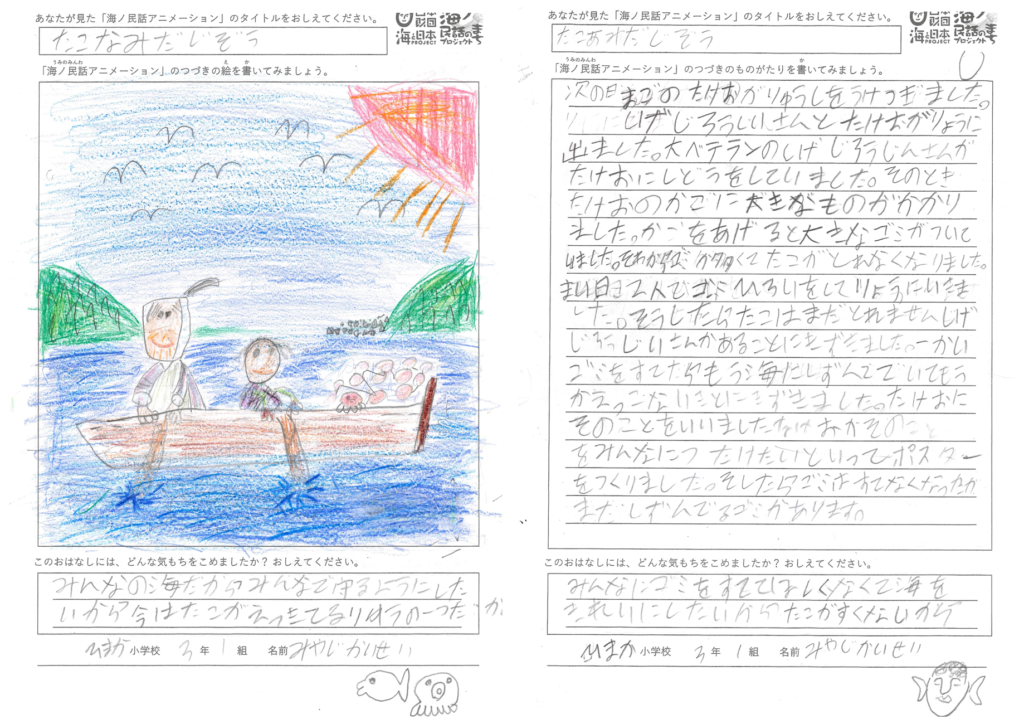 あなたが見た「海ノ民話アニメーション」のタイトルをおしえてください。
海と日本
PROJECT
海ノ
民話のまち
プロジェクト
たこなみだじぞう
うみのみんわ
え
か
「海ノ民話アニメーション」のつづきの絵を書いてみましょう。
このおはなしには、どんな気もちをこめましたか？おしえてください。
みんなの海だからみんなで守るようにした
いから今はたこが
てるりゆうの一つだ
ひまか小学校 3年 1組 名前 みやじかいせい
あなたが見た「海ノ民話アニメーション」のタイトルをおしえてください。
海と日本
PROJECT
海ノ
民話のまち
プロジェクト
たこあみだじぞう
うみのみんわ
か
「海ノ民話アニメーション」のつづきのものがたりを書いてみましょう。
次の日まごのたけおがりょうしをうけつぎました。
しげじろうじいさんとたけおがりょうに
出ました。大ベテランのしげじろうじんさんが
たけおにしどうをしていました。そのとき
たけおのかごに大きなものがかかり
ました。かごをあげると大きなゴミがついて
いました。 たこがとれなくなりました。
まい日2人でゴミひろいをしてりょうにいきま
した。そうしたらたこはまだとれませんしげ
じろうじいさんがあることにきずきました。一かい
ゴミをすてたらもう海にしずんででいてもう
かえってこないことにきずきました。たけおに
そのことをいいましたたけおがそのこと
をみんなにつたけたいといってポスター
をつくりました。そしたらゴミはすてなくなったが
まだしずんでるゴミがあります。
このおはなしには、どんな気もちをこめましたか？おしえてください。
みんなにゴミをすててほしくなくて海を
きれいにしたいからたこがすくないから
ひまか小学校 3年 1組 名前 みやじかいせい